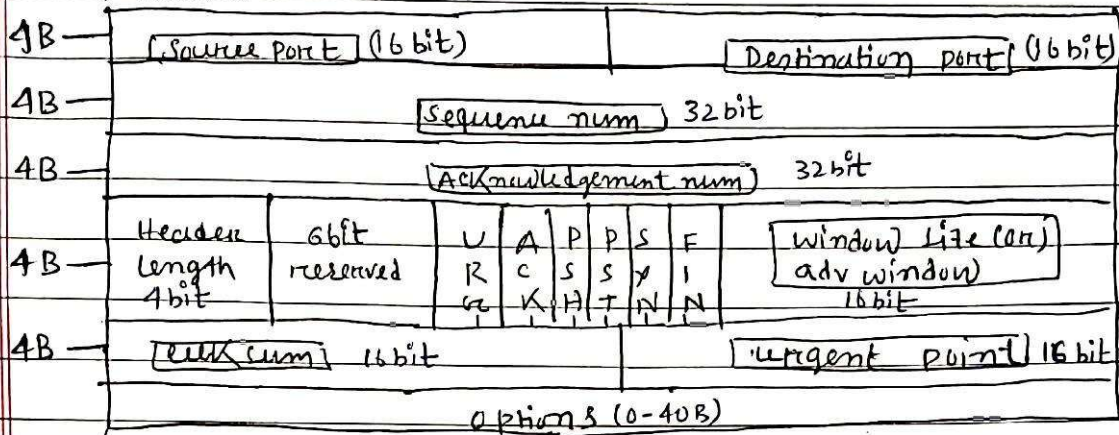 4B — Source Port (16 bit) Destination port (16 bit)
4B — Sequence num 32 bit
4B — Acknowledgement num 32 bit
4B — Header length 4 bit 6 bit reserved URG ACK PSH PST SYN FIN Window size (or) adv window 16 bit
4B — sum 16 bit urgent point 16 bit
options (0-40B)